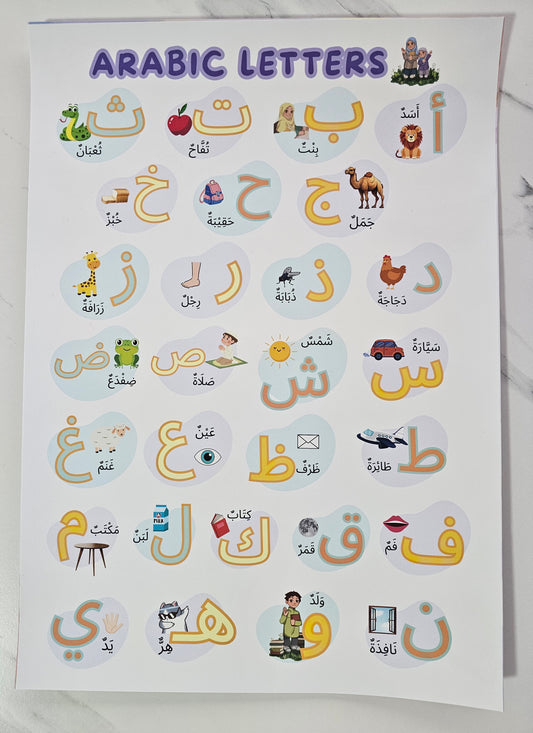 ARABIC LETTERS
أ أَسَدٌ
ب بِنْتٌ
ت تُفَّاحٌ
ث ثُعْبَانٌ
ج جَمَلٌ
ح حَقِيْبَةٌ
خ خُبْزٌ
د دَجَاجَةٌ
ذ ذُبَابَةٌ
ر رِجْلٌ
ز زَرَافَةٌ
س سَيَّارَةٌ
ش شَمْسٌ
ص صَلَاةٌ
ض ضِفْدَعٌ
ط طَائِرَةٌ
ظ ظَرْفٌ
ع عَيْنٌ
غ غَنَمٌ
ف فَمٌ
ق قَمَرٌ
ك كِتَابٌ
ل لَبَنٌ MILK
م مَكْتَبٌ
ن نَافِذَةٌ
و وَلَدٌ
هـ هِرٌّ
ي يَدٌ